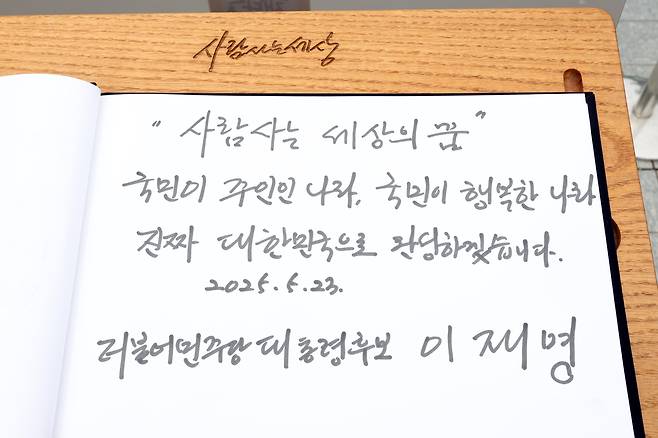 사람사는세상
"사람사는 세상의 꿈"
국민이 주인인 나라, 국민이 행복한 나라
진짜 대한민국으로 완성하겠습니다.
2025. 5. 23.
더불어민주당 대통령후보 이재명